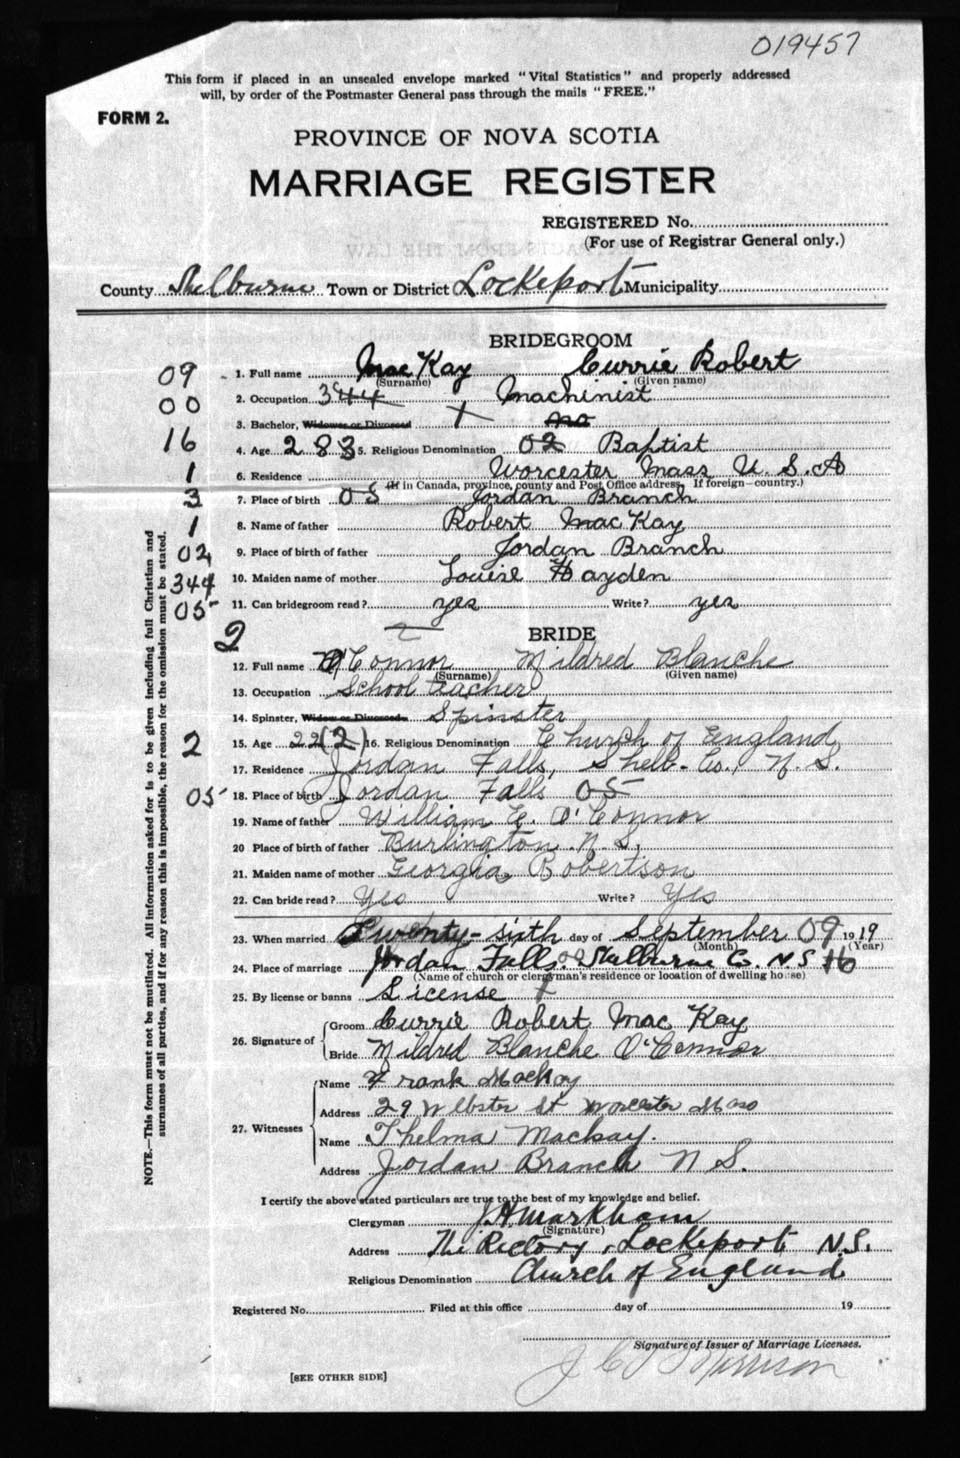 019457
This form if placed in an unsealed envelope marked "Vital Statistics" and properly addressed
will, by order of the Postmaster General pass through the mails "FREE."
FORM 2.
PROVINCE OF NOVA SCOTIA
MARRIAGE REGISTER
REGISTERED No.
(For use of Registrar General only.)
County Shelburne Town or District Lockeport Municipality
BRIDEGROOM
09 1. Full name MacKay Currie Robert
(Surname) (Given name)
00 2. Occupation 344 Machinist
3. Bachelor, Widower or Divorced no
16 4. Age 28 3 5. Religious Denomination 02 Baptist
1 6. Residence Worcester Mass U.S.A
(If in Canada, province, county and Post Office address. If foreign—country.)
3 7. Place of birth 05 Jordan Branch
1 8. Name of father Robert MacKay
02 9. Place of birth of father Jordan Branch
344 10. Maiden name of mother Louise Hayden
05 11. Can bridegroom read? yes Write? yes
2 BRIDE
12. Full name O'Connor Mildred Blanche
(Surname) (Given name)
13. Occupation School teacher
14. Spinster, Widow or Divorced Spinster
2 15. Age 22 (2) 16. Religious Denomination Church of England
17. Residence Jordan Falls, Shelb. Co., N.S.
05 18. Place of birth Jordan Falls 05
19. Name of father William E. O'Connor
20 Place of birth of father Burlington N.S.
21. Maiden name of mother Georgia Robertson
22. Can bride read? Yes Write? Yes
23. When married Twenty-sixth day of September 09 1919
(Month) (Year)
24. Place of marriage Jordan Falls. Shelburne Co. N.S. 16
(Name of church or clergyman's residence or location of dwelling house)
25. By license or banns License
26. Signature of Groom Currie Robert MacKay
Bride Mildred Blanche O'Connor
27. Witnesses Name Frank MacKay
Address 29 Webster St Worcester Mass
Name Thelma Mackay.
Address Jordan Branch N S.
I certify the above stated particulars are true to the best of my knowledge and belief.
Clergyman J.H. Markham
(Signature)
Address The Rectory, Lockeport N.S.
Religious Denomination Church of England
Registered No. Filed at this office day of 19
Signature of Issuer of Marriage Licenses.
J C Morrison
[SEE OTHER SIDE]
NOTE.—This form must not be mutilated. All information asked for is to be given including full Christian and
surnames of all parties, and if for any reason this is impossible, the reason for the omission must be stated.